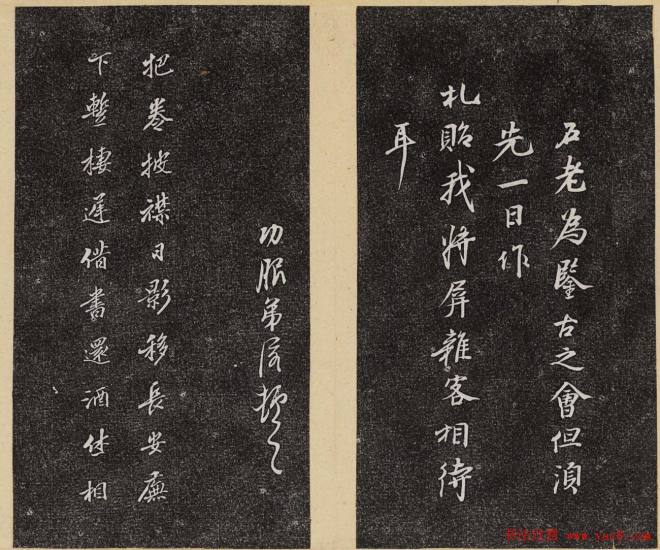 石老為鑒古之會但須
先一日作
札貽我將屏雜客相待
耳
功服弟
把卷披襟日影移長安廡
下暫棲遲借書還酒付相